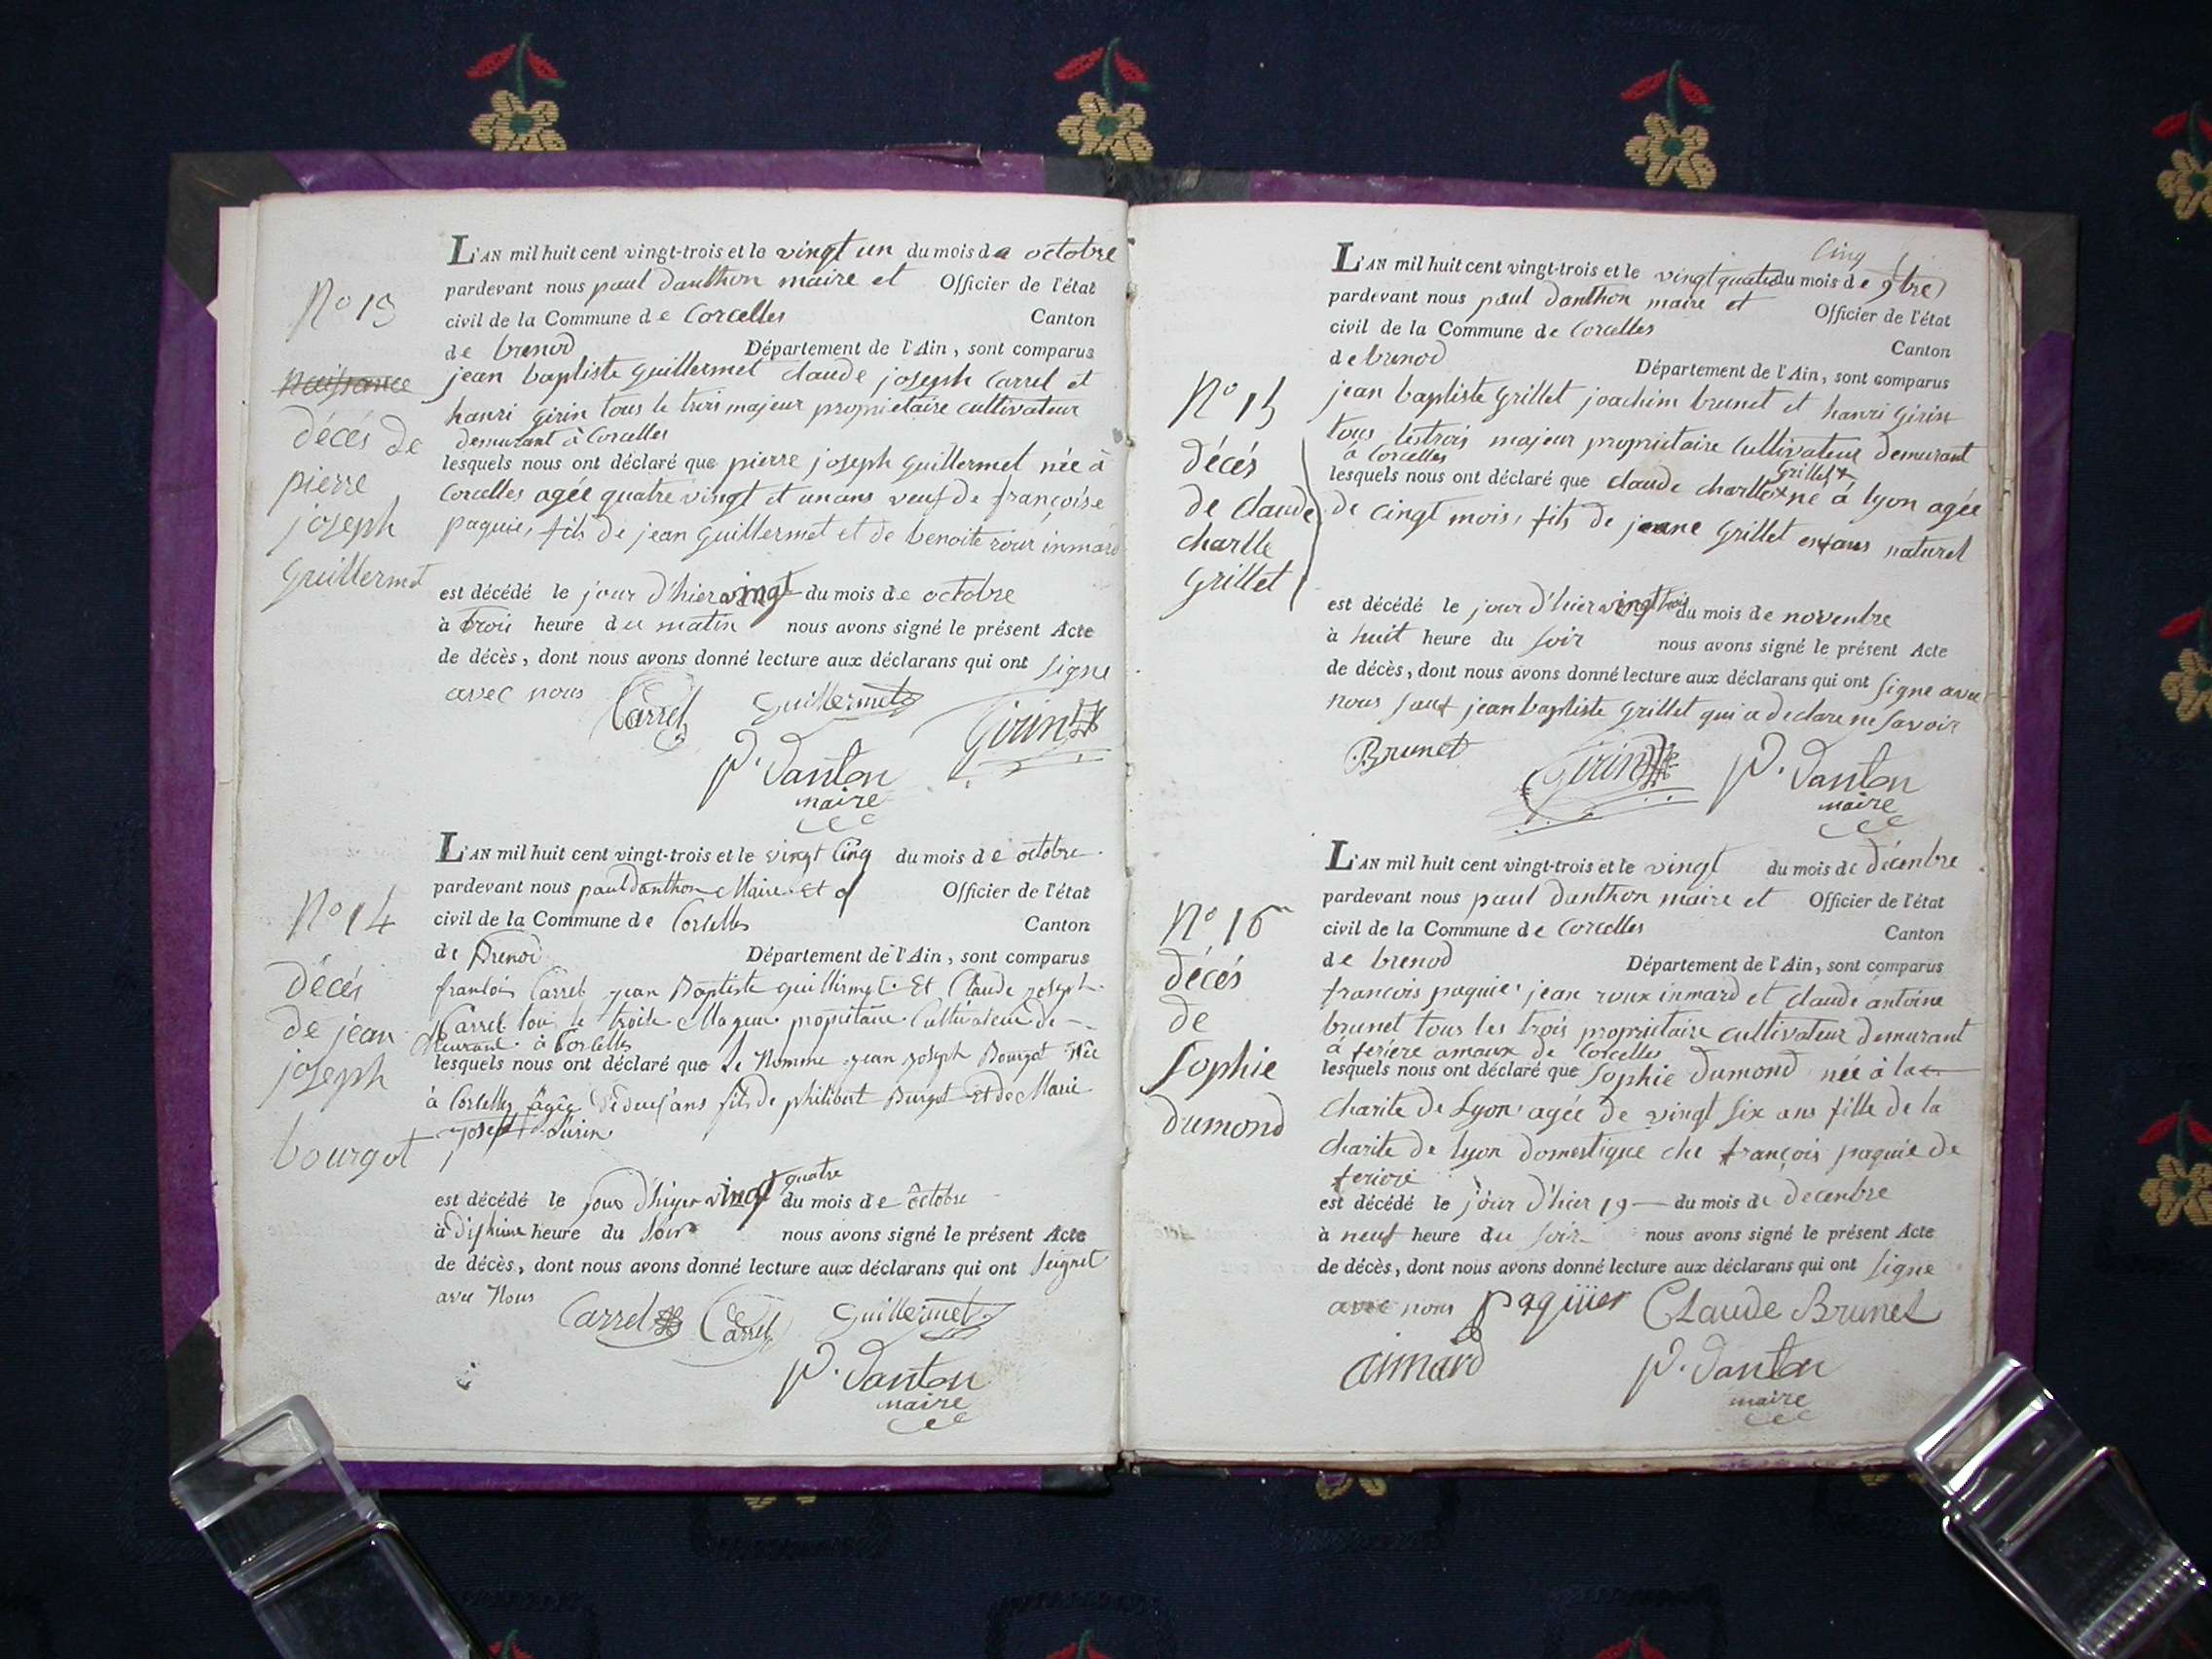 N° 13
naissance
décés de
pierre
joseph
guillermet
L'AN mil huit cent vingt-trois et le vingt un du mois de octobre
pardevant nous paul danthon maire et Officier de l'état
civil de la Commune de Corcelles Canton
de brenod Département de l'Ain, sont comparus
jean baptiste guillermet claude joseph Carrel et
hanri girin tous le trois majeur proprietaire cultivateur
demurant à Corcelles
lesquels nous ont déclaré que pierre joseph guillermet née à
Corcelles agée quatre vingt et un ans veuf de françoise
paquie, fils de jean guillermet et de benoite
est décédé le jour d'hier vingt du mois de octobre
à trois heure du matin nous avons signé le présent Acte
de décès, dont nous avons donné lecture aux déclarans qui ont signe
avec nous Carrel guillermet Girin
P. Danton
maire
N° 14
décés
de jean
joseph
bourgot
L'AN mil huit cent vingt-trois et le vingt Cinq du mois de octobre
pardevant nous paul danthon Maire et Officier de l'état
civil de la Commune de Corcelles Canton
de Brenod Département de l'Ain, sont comparus
Carrel jean Baptiste guillermet Et Claude joseph
Carrel tous le Mageur proprietaire Cultivateur de
meurant à Corcelles
lesquels nous ont déclaré que Le Nomme jean joseph Bourgot Née
à Corcelles agée fils de philibert Burgot Et de Marie
est décédé le jour vingt quatre du mois de octobre
à heure du Soir nous avons signé le présent Acte
de décès, dont nous avons donné lecture aux déclarans qui ont
avec Nous
Carrel Carrel guillermet
P. Danton
maire
Cinq
N° 15
décés
de claude
charlle
grillet
L'AN mil huit cent vingt-trois et le vingt quatre du mois de 9bre
pardevant nous paul danthon maire et Officier de l'état
civil de la Commune de Corcelles Canton
de brenod Département de l'Ain, sont comparus
jean baptiste grillet joachim brunet et hanri girin
tous les trois majeur proprietaire Cultivateur demurant
à Corcelles
grillet
lesquels nous ont déclaré que claude charlle né à lyon agée
de cingt mois, fils de jeane grillet enfans naturel
est décédé le jour d'hier vingt trois du mois de novenbre
à huit heure du soir nous avons signé le présent Acte
de décès, dont nous avons donné lecture aux déclarans qui ont signe avec
nous sauf jean baptiste grillet qui a declare ne savoir
Brunet Girin P. Danton
maire
N° 16
décés
de
Sophie
dumond
L'AN mil huit cent vingt-trois et le vingt du mois de décenbre
pardevant nous paul danthon maire et Officier de l'état
civil de la Commune de Corcelles Canton
de brenod Département de l'Ain, sont comparus
françois paquie jean roux inmard et claude antoine
brunet tous les trois proprietaire cultivateur demurant
à feriere amaux de Corcelles
lesquels nous ont déclaré que Sophie dumond née à la
charite de Lyon agée de vingt six ans fille de la
charite de lyon domestique che françois paquie de
est décédé le jour d'hier 19 du mois de decenbre
à neuf heure du soir nous avons signé le présent Acte
de décès, dont nous avons donné lecture aux déclarans qui ont signe
avec nous Paquier CLaude Brunet
aimard P. Danton
maire